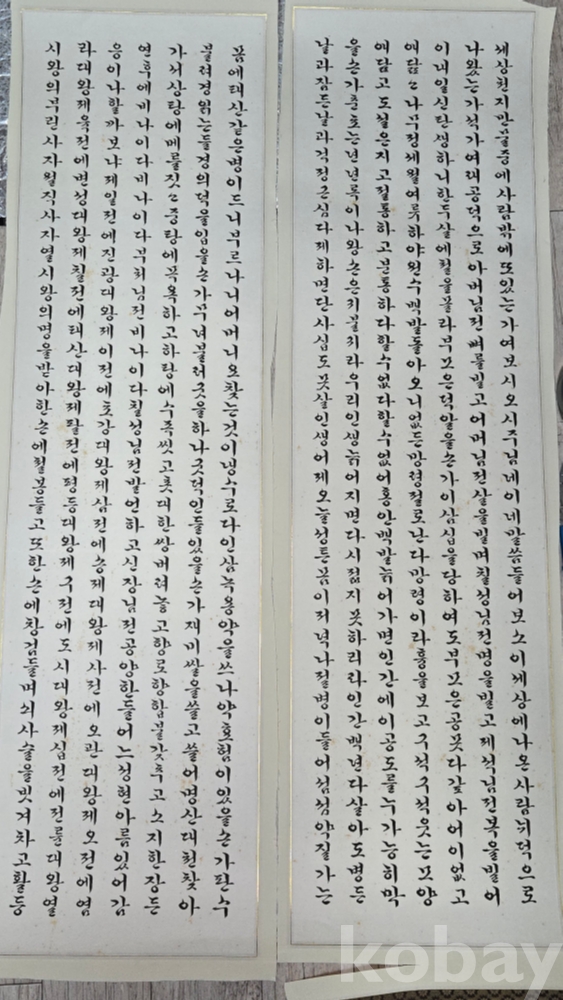 세상천지만물중에사람밖에또있는가여보시오시주님네이네말씀들어보소이세상에나온사람뉘덕으로
나왔는가석가여래공덕으로아버님전뼈를빌고어머님전살을빌며칠성님전명을빌고제석님전복을빌어
이내일신탄생하니한두살에철을몰라부모은덕알을손가이삼십을당하여도부모은공못다갚아어이없고
애닯고나무정세월여류하야원수백발돌아오니없든망령절로난다망령이라흉을보고구석구석웃는모양
애닯고도설은지고절통하고분통하다할수없다할수없어홍안백발늙어가면인간에이공도를누가능히막
을손가춘초는년년록이나왕손은귀불귀라우리인생늙어지면다시젊지못하리라인간백년다살아도병든
날과잠든날과걱정근심다제하면단사십도못살인생어제오늘성튼몸이저녁나절병이들어섬섬약질가는
몸에태산같은병이드니부르나니어머니오찾는것이냉수로다인삼녹용약을쓰나약효험이있을손가판수
불러경읽는들경의덕을입을손가무녀불러굿을하나굿덕인들있을손가재미쌀을쓸고쓸어명산대천찾아
가서상탕에메를짓고중탕에목욕하고하탕에수족씻고촛대한쌍버려놓고향로향합불갖추고소지한장든
연후에비나이다비나이다부처님전비나이다칠성님전발언하고신장님전공양한들어느성현아름있어감
응이나할까보냐제일전에진광대왕제이전에초강대왕제삼전에송제대왕제사전에오관대왕제오전에염
라대왕제육전에변성대왕제칠전에태산대왕제팔전에평등대왕제구전에도시대왕제십전에전륜대왕열
시왕의부린사자월직사자열시왕의명을받아한손에철봉들고또한손에창검들며쇠사슬을빗겨차고활등
kobay